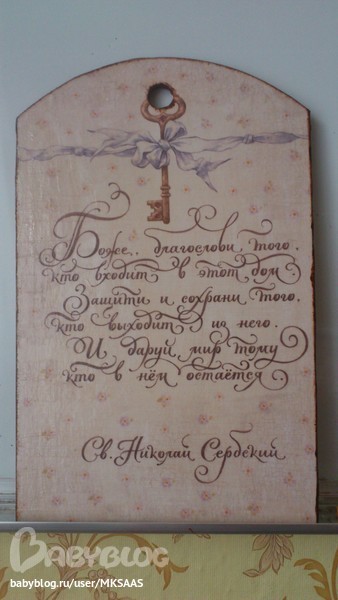 Боже, благослови того,
кто входит в этот дом
Защити и сохрани того,
кто выходит из него.
И даруй мир тому
кто в нём остаётся
Св. Николай Сербский
BABYBLOG
babyblog.ru/user/MKSAAS